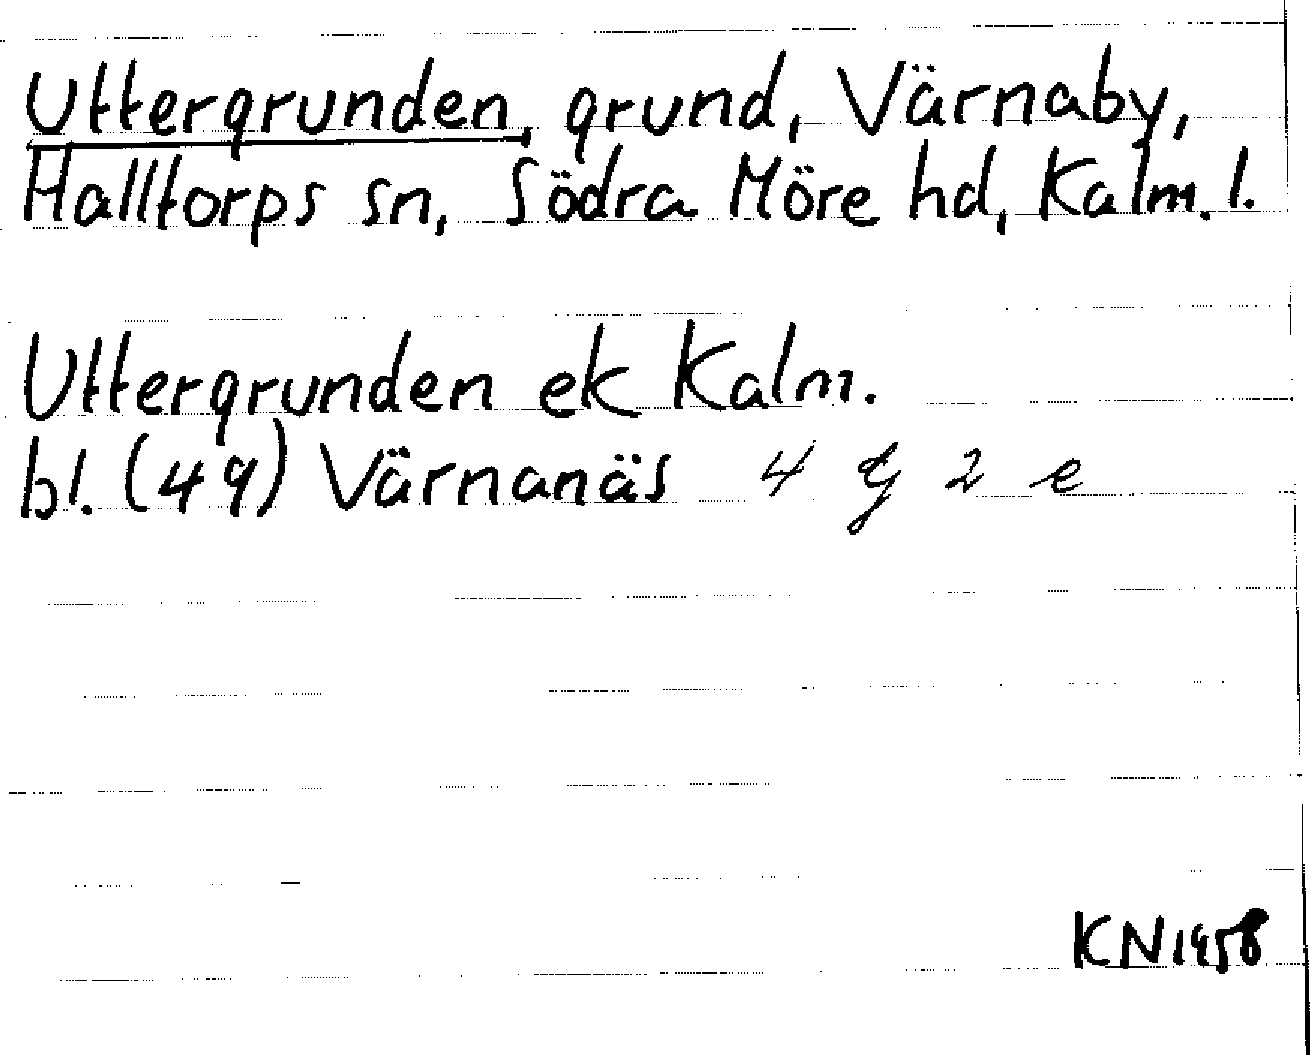 Uttergrunden, grund, Värnaby,
Halltorps sn, Södra Möre hd, Kalm. l.
Uttergrunden ek Kalm.
bl. (49) Värnanäs 4 G 2 e
KN1958